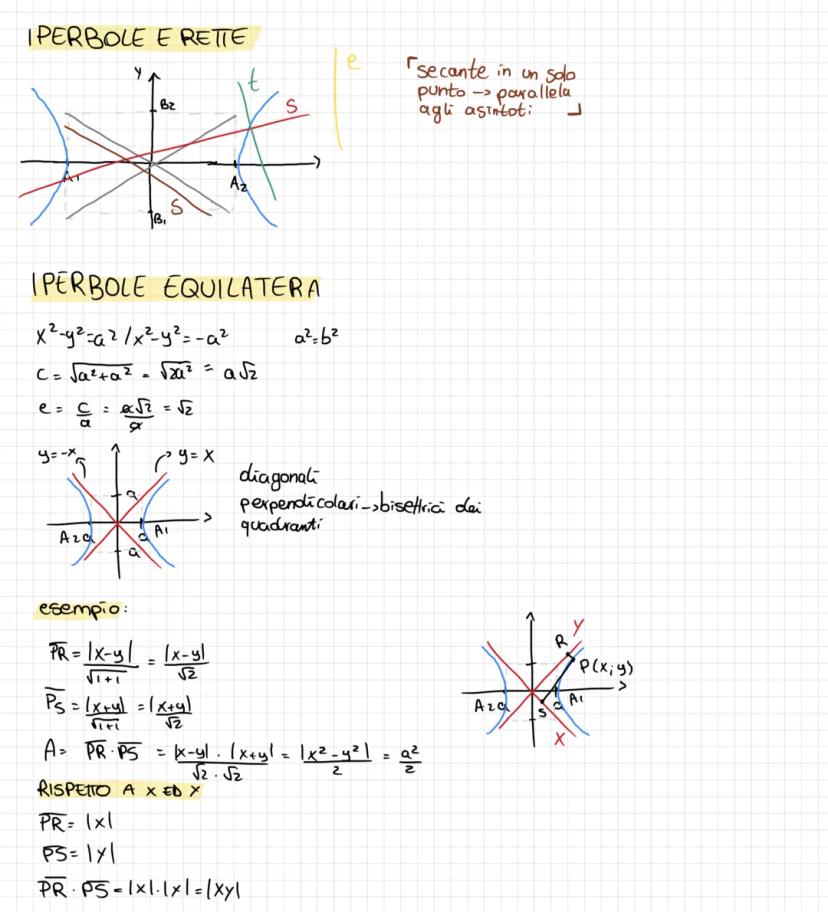 IPERBOLE E RETTE
y
B2
t
S
A1
A2
S
B1
e
secante in un solo
punto -> parallela
agli asintoti
IPERBOLE EQUILATERA
x²-y²=a² / x²-y²=-a² a²=b²
c = √a²+a² = √2a² = a√2
e = c/a = a√2/a = √2
y=-x
y=x
a
A2 a
a A1
a
diagonali
perpendicolari->bisettrici dei
quadranti
esempio:
PR = |x-y|/√1+1 = |x-y|/√2
PS = |x+y|/√1+1 = |x+y|/√2
A = PR·PS = |x-y|·|x+y|/√2·√2 = |x²-y²|/2 = a²/2
R
Y
P(x;y)
A2 a
S
a
A1
X
RISPETTO A X ED Y
PR = |X|
PS = |Y|
PR·PS = |X|·|Y| = |XY|